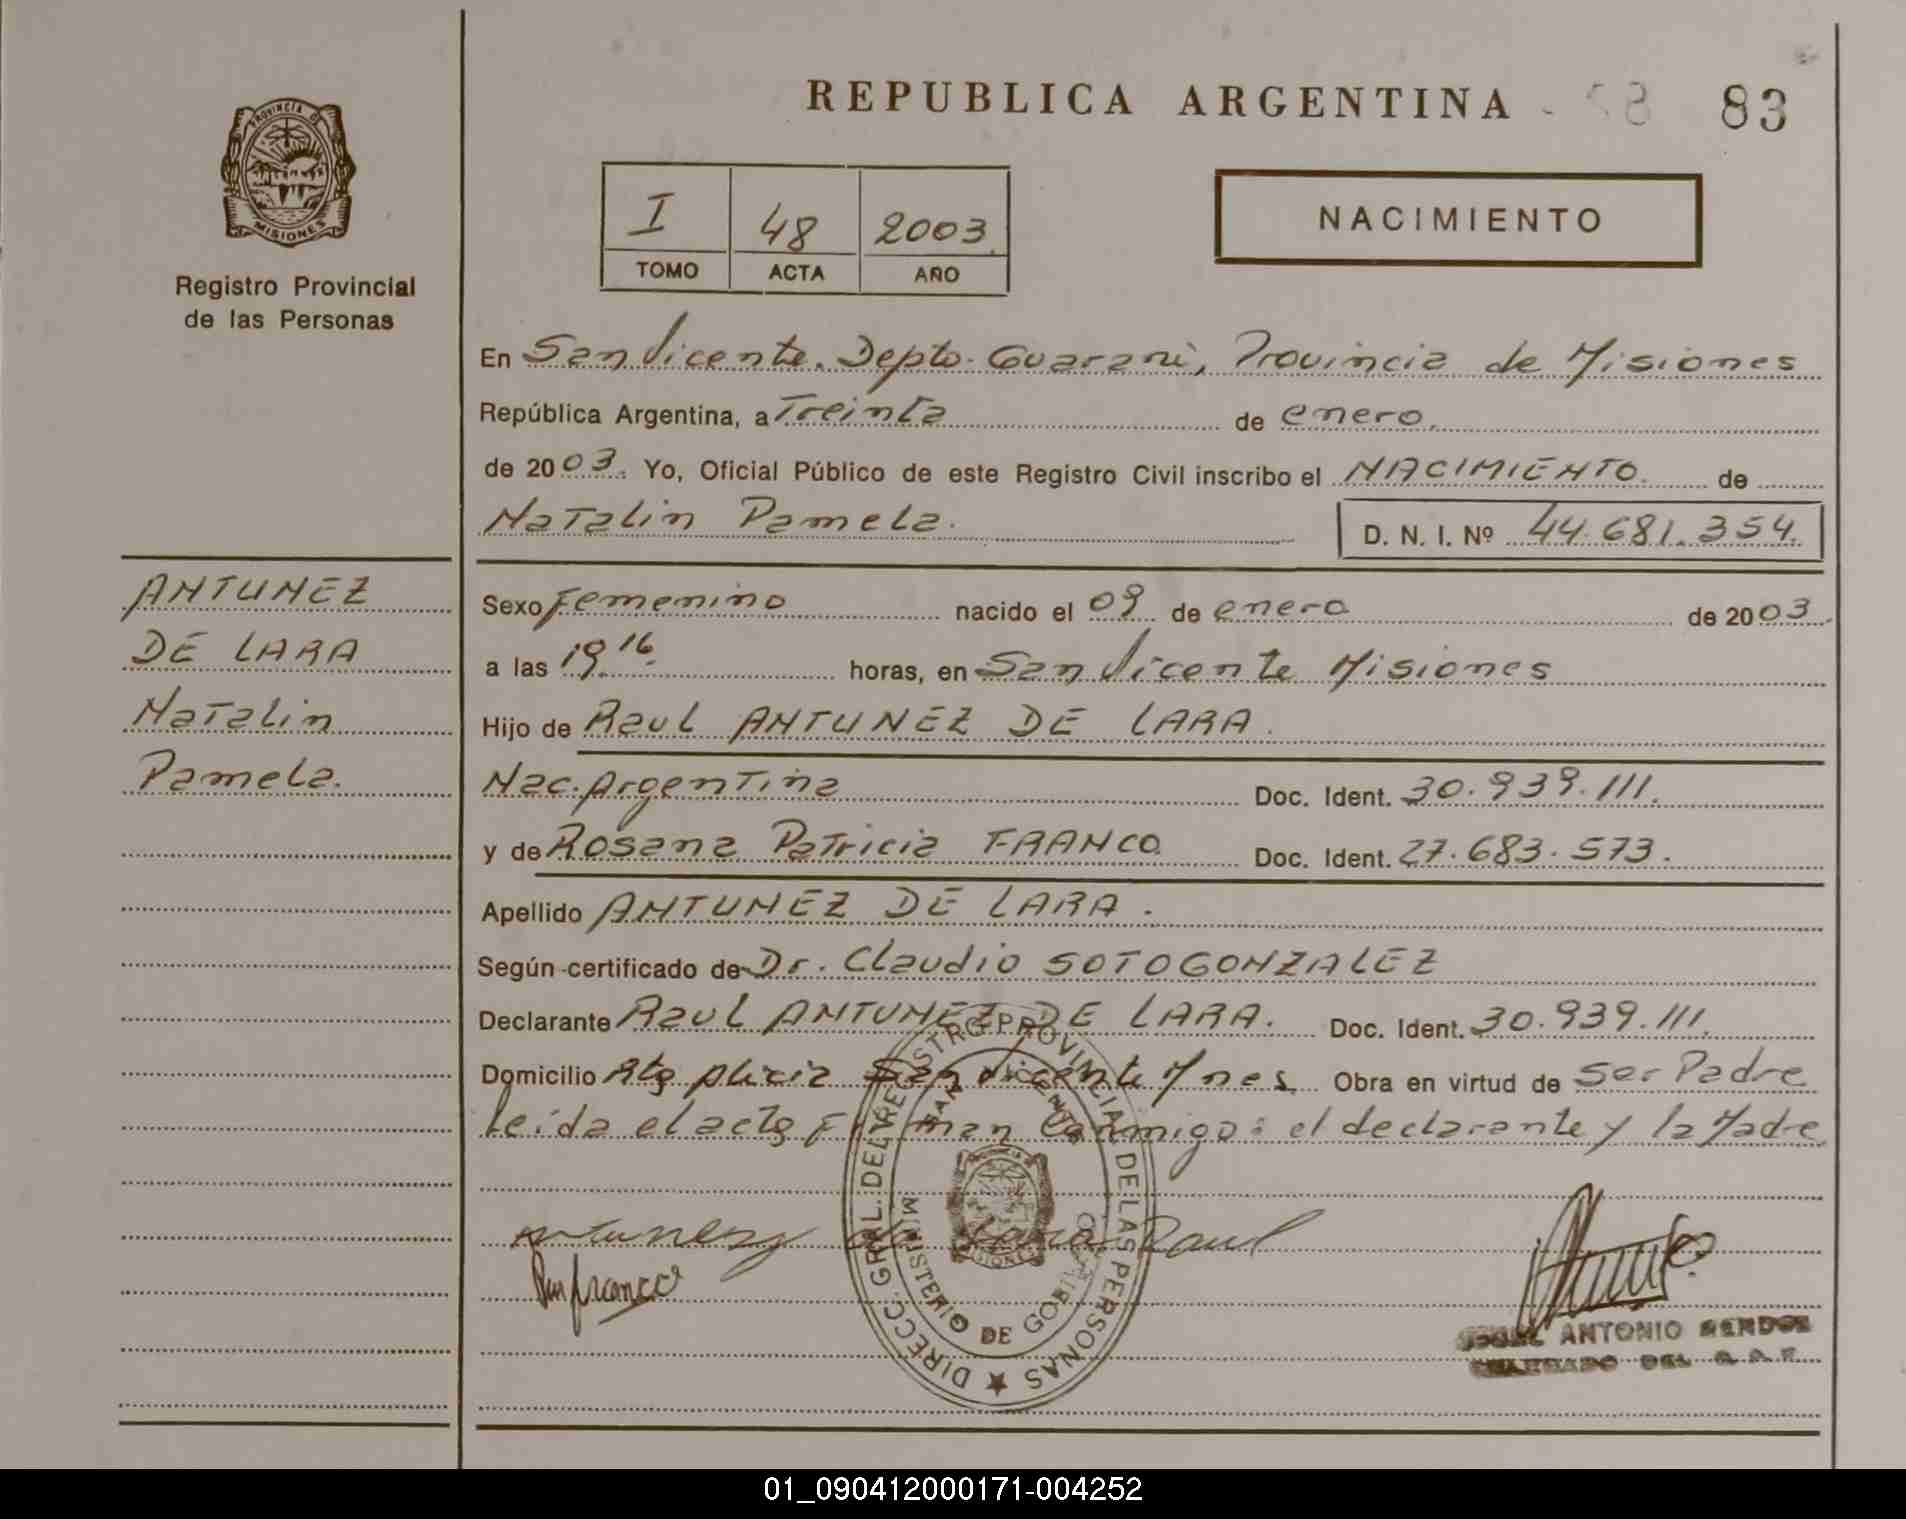 REPUBLICA ARGENTINA
83
PROVINCIA DE
MISIONES
Registro Provincial
de las Personas
I 48 2003
TOMO ACTA AÑO
NACIMIENTO
En San Vicente. Depto. Guarani, Provincia de Misiones
República Argentina, a Treinta de enero.
de 2003. Yo, Oficial Público de este Registro Civil inscribo el NACIMIENTO de
Natalin Pamela.
D. N. I. Nº 44.681.354.
ANTUNEZ
DE LARA
Natalin
Pamela.
Sexo Femenino nacido el 09 de enero de 2003
a las 19.16 horas, en San Vicente Misiones
Hijo de Raul ANTUNEZ DE LARA.
Nac. Argentina Doc. Ident. 30.939.111.
y de Rosana Patricia FRANCO Doc. Ident. 27.683.573.
Apellido ANTUNEZ DE LARA.
Según certificado de Dr. Claudio SOTOGONZALEZ
Declarante Raul ANTUNEZ DE LARA. Doc. Ident. 30.939.111.
Domicilio San Vicente Mnes Obra en virtud de Ser Padre
leida el acta Firman Conmigo: el declarante y la Madre
DIRECC. GRAL. DEL REGISTRO PROVINCIAL DE LAS PERSONAS
SAN VICENTE
MINISTERIO DE GOBIERNO
Antunez de Lara Raul
Franco
ANTONIO
DEL
01_090412000171-004252